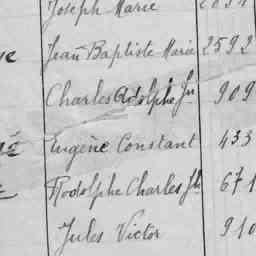 Joseph Marie
Jean Baptiste Marie 2592
Charles Adolphe Jn 909
Eugène Constant 433
Rodolphe Charles Jh 671
Jules Victor 910